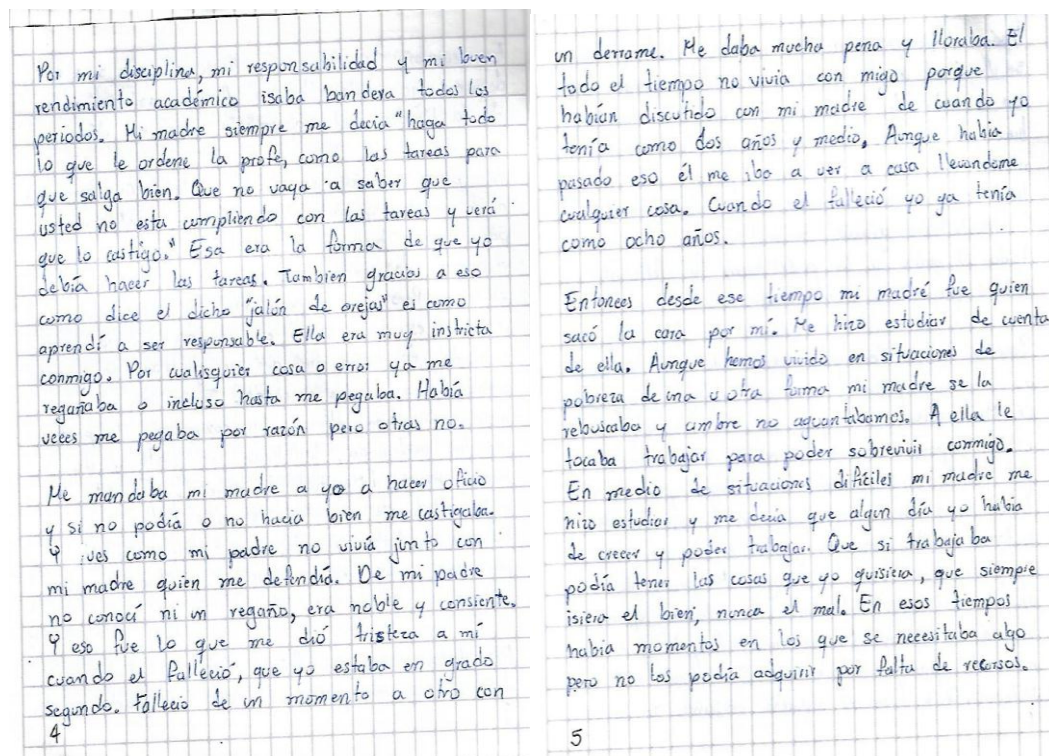 Por mi disciplina, mi responsabilidad y mi buen
rendimiento académico isaba bandera todos los
periodos. Mi madre siempre me decia "haga todo
lo que le ordene la profe, como las tareas para
que salga bien. Que no vaya a saber que
usted no esta cumpliendo con las tareas y verá
que lo castigo." Esa era la forma de que yo
debía hacer las tareas. Tambien gracias a eso
como dice el dicho "jalón de orejas" es como
aprendí a ser responsable. Ella era muy instricta
conmigo. Por cualisquier cosa o error ya me
regañaba o incluso hasta me pegaba. Había
veces me pegaba por razón pero otras no.
Me mandaba mi madre a yo a hacer oficio
y si no podía o no hacia bien me castigaba.
como mi padre no vivía junto con
mi madre quien me defendía. De mi padre
no conocí ni un regaño, era noble y consiente.
Y eso fue lo que me dió tristeza a mí
cuando el falleció, que yo estaba en grado
segundo. Falleció de un momento a otro con
4
un derrame. Me daba mucha pena y lloraba. El
todo el tiempo no vivia con migo porque
habían discutido con mi madre de cuando yo
tenía como dos años y medio. Aunque habia
pasado eso él me iba a ver a casa llevandome
cualquier cosa. Cuando el falleció yo ya tenía
como ocho años.
Entonces desde ese tiempo mi madré fue quien
sacó la cara por mí. Me hizo estudiar de cuenta
de ella. Aunque hemos vivido en situaciones de
pobreza de una u otra forma mi madre se la
rebuscaba y ambre no aguantabamos. A ella le
tocaba trabajar para poder sobrevivir conmigo.
En medio de situaciones dificiles mi madre me
hizo estudiar y me decia que algun día yo habia
de crecer y poder trabajar. Que si trabajaba
podía tener las cosas que yo quisiera, que siempre
isiera el bien, nunca el mal. En esos tiempos
habia momentos en los que se necesitaba algo
pero no los podía adquirir por falta de recursos.
5